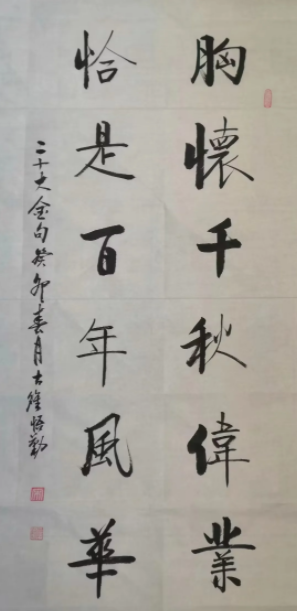 胸懷千秋偉業
恰是百年風華
二十大金句癸卯春月古隆悟勤